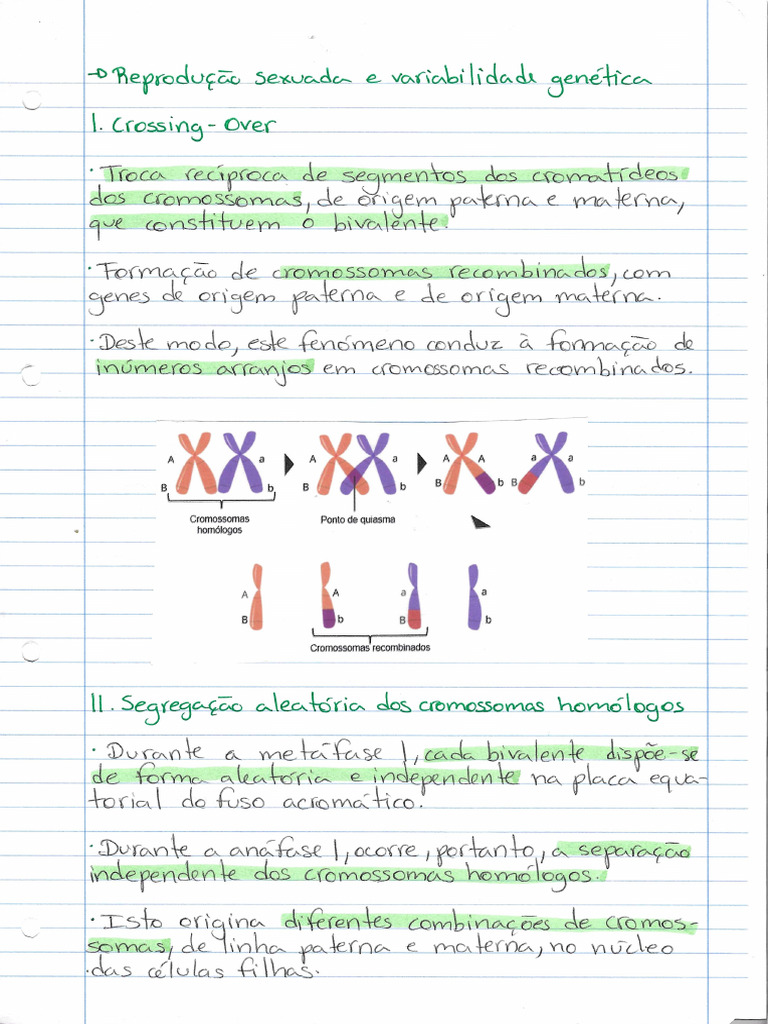 → Reprodução sexuada e variabilidade genética
I. Crossing-Over
· Troca recíproca de segmentos dos cromatídeos
dos cromossomas, de origem paterna e materna,
que constituem o bivalente.
· Formação de cromossomas recombinados, com
genes de origem paterna e de origem materna.
· Deste modo, este fenómeno conduz à formação de
inúmeros arranjos em cromossomas recombinados.
A a A a A A a a
B b B b B b B b
Cromossomas
homólogos
Ponto de quiasma
A A a a
B b B b
Cromossomas recombinados
II. Segregação aleatória dos cromossomas homólogos
· Durante a metáfase I, cada bivalente dispõe-se
de forma aleatória e independente na placa equa-
torial do fuso acromático.
· Durante a anáfase I, ocorre, portanto, a separação
independente dos cromossomas homólogos.
· Isto origina diferentes combinações de cromos-
somas, de linha paterna e materna, no núcleo
das células filhas.